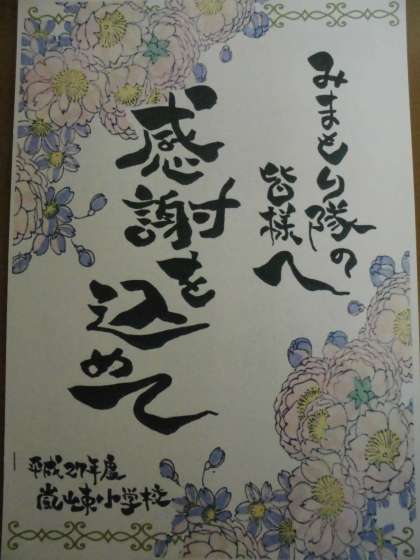 みまもり隊の
皆様へ
感謝を
込めて
平成27年度
嵐山東小学校